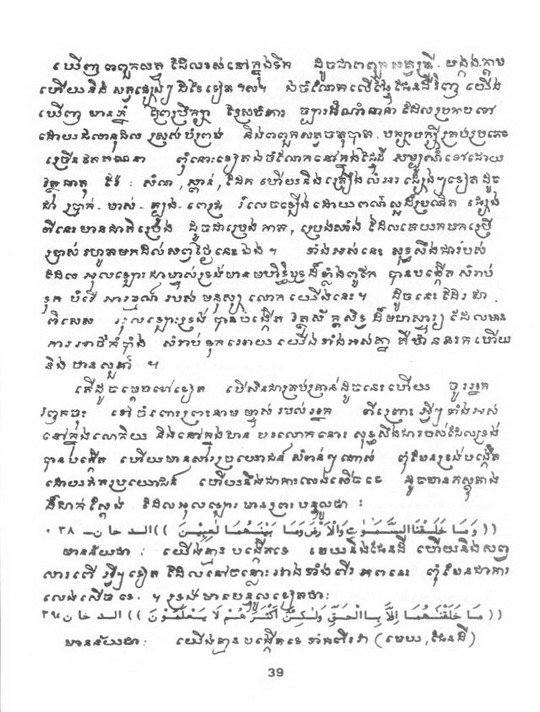 ឃើញ ពពួកសត្វ ដែលរស់នៅក្នុងទឹក ដូចជាពពួកសត្វត្រី - បង្កង ក្តាម
ហើយនិង សត្វផ្សេងៗ ដទៃទៀត ។ល។ ឯចំណែកលើផ្ទៃផែនដីវិញ យើង
ឃើញ មានភ្នំ ព្រៃព្រឹក្សា ច្បារដំណាំនានា ដែលប្រកបទៅ
ដោយ និងពពួកសត្វចតុប្បាត, បក្សាបក្សីគ្រប់ប្រភេទ
ច្រើនឥតគណនា ពុំនោះទៀតឯចំណែកនៅក្នុងផ្ទៃដី សម្បូណ៌ទៅដោយ
វត្ថុធាតុ រ៉ែ : សំណ, ស្ពាន់, ដែក ហើយនិងគ្រឿងលំអរ ផ្សេងៗទៀតដូច
ជា ប្រាក់ - មាស - ត្បូង - ពេជ្រ រំលេចឡើងដោយពណ៌ស្អដ៏ប្រណិត ផ្សេង
ពីនេះ មានជាតិប្រេង ដូចជាប្រេងកាត, ប្រេងសាំង ដែលគេយកមកប្រើ
ប្រាស់ រហូតមកដល់សព្វថ្ងៃនេះឯង ។ ទាំងអស់នេះ សុទ្ធសឹងជារបស់
ដែល អុលឡោះជាម្ចាស់ទ្រង់មានមហិទ្ធិឫទ្ធដ៏ខ្លាំងពូកែ បានបង្កើត សំរាប់
ទុក បំរើ អារម្មណ៍ របស់ មនុស្ស លោក យើងនេះ ។ ដូចនេះ ដែរ ជា
ពិសេស អុលឡោះទ្រង់ បានបង្កើត វត្ថុស័ក្តិសិទ្ធ ដ៏មហាស្ចារ្យ ដែលមាន
ការអាថ៌កំបាំង សំរាប់ទុកអោយ យើងទាំងអស់គ្នា គឺឋាននរក ហើយ
និង ឋានសួគ៌ា ។
តើដូចម្តេចទៅទៀត បើសិនជាគ្រប់គ្រាន់ដូចនេះហើយ ចូរអ្នក
រំឭកចុះ ទៅចំពោះព្រះនាម ម្ចាស់ របស់អ្នក ពីព្រោះ អ្វីៗទាំងអស់
នៅក្នុងលោកិយ និងនៅក្នុងឋាន បរលោកនោះ សុទ្ធសឹងជារបស់ដែលទ្រង់
បានបង្កើត ហើយមានសារប្រយោជន៍ សំខាន់ៗណាស់ ពុំមែនទ្រង់បង្កើត
ដោយឥតប្រយោជន៍ ហើយនិងជាការលេងសើចទេ ដូចមានភស្តុតាង
ដ៏ជាក់ស្តែង ដែលអុលឡោះ មានព្រះបន្ទូលថា :
(( وَمَا خَلَقْنَا السَّمٰوٰتِ وَالْأَرْضَ وَمَا بَيْنَهُمَا لٰعِبِيْنَ )) الدخان- ٣٨ ٠
មានន័យថា : យើងគ្មានបង្កើតទេ មេឃនិងផែនដី ហើយនិងសព្វ
សារពើ អ្វីៗទៀត ដែលនៅចន្លោះ វាងទាំងពីរ ភពនេះ ពុំមែនជាការ
លេងសើចទេ . ។ ទ្រង់មានបន្ទូលទៀតថា:
(( مَا خَلَقْنٰهُمَا اِلَّا بِالْحَقِّ وَلٰكِنَّ أَكْثَرَهُمْ لَا يَعْلَمُوْنَ )) الدخان ٣٩
មានន័យថា: យើងគ្មានបង្កើតទេ ទាំងពីរវា (មេឃ, ផែនដី)
39